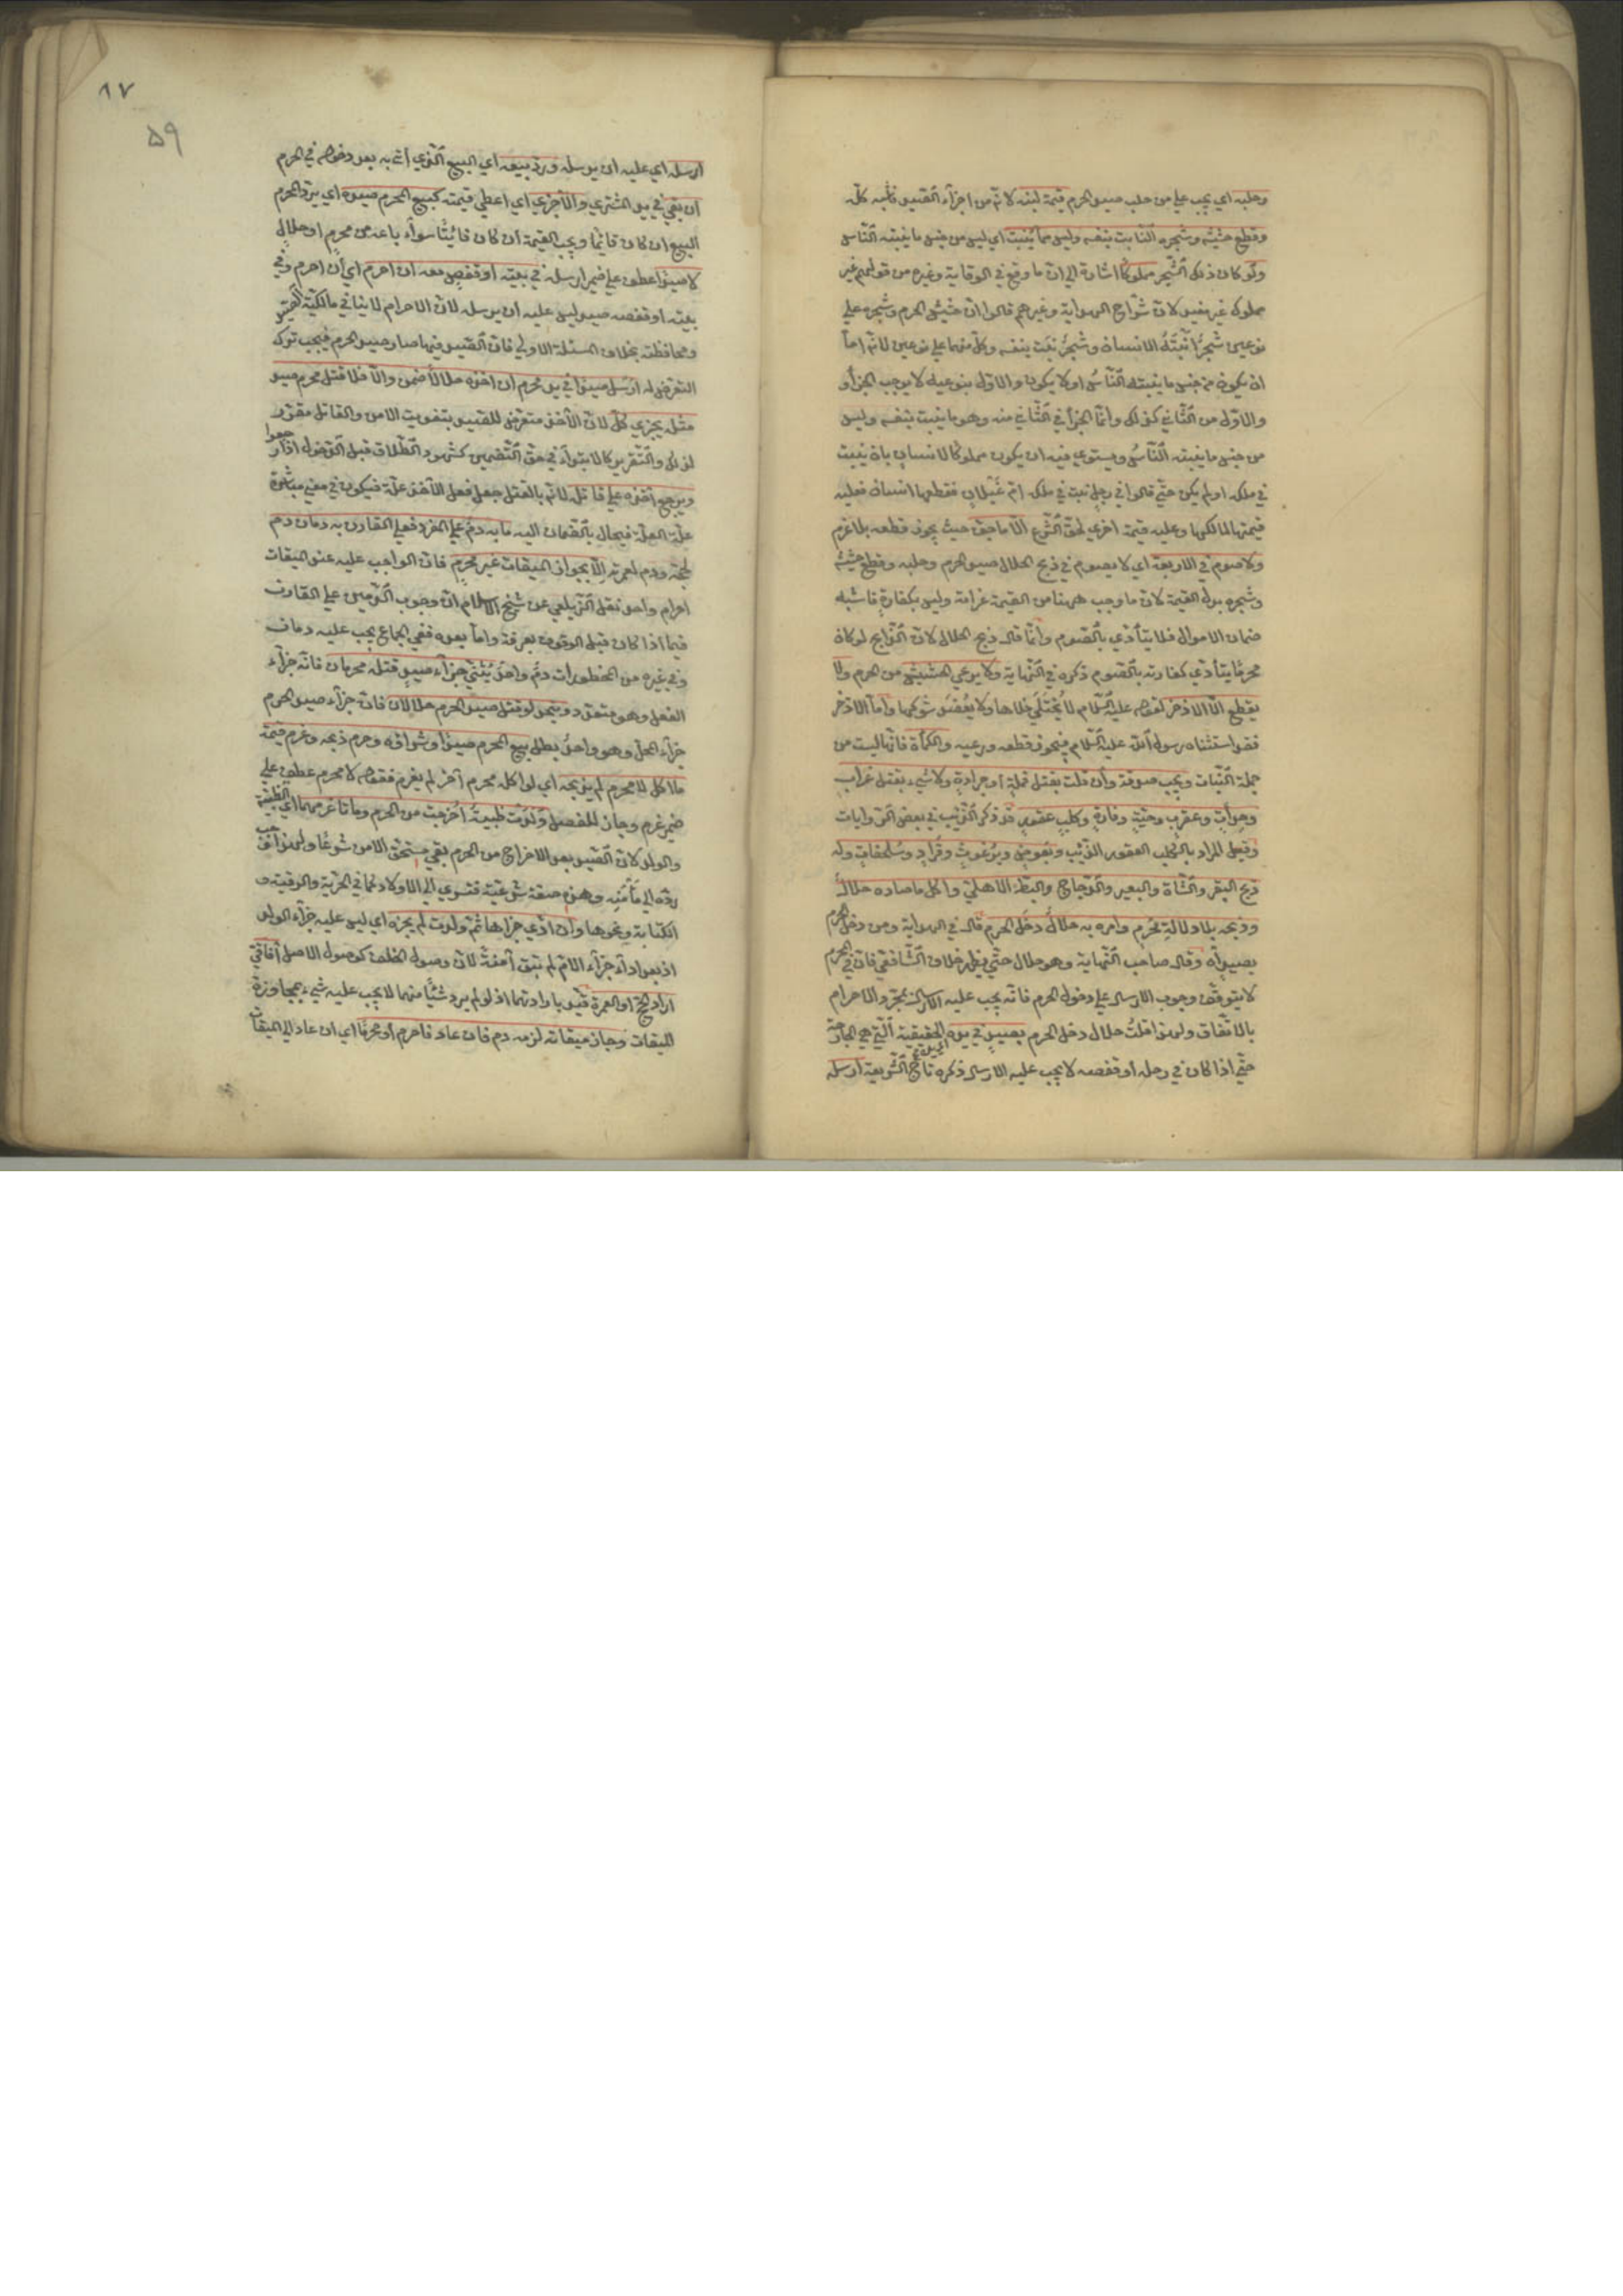 وحلبه اي يجب علي من حلب صيد الحرم قيمة لبنه لانه من اجزاء الصيد فاشبه كله
وقطع حشيشه وشجره النابت بنفسه وليس مما ينبت اي ليس من جنس ما ينبته الناس
ولو كان ذلك الشجر مملوكا اشارة الي ان ما وقع في الوقاية وغيره من قولهم غير
مملوك غير مفيد لان شراح الهداية وغيرهم قالوا ان حشيش الحرم وشجره علي
نوعين شجر انبته الانسان وشجر نبت بنفسه وكل منهما علي نوعين لانه اما
ان يكون من جنس ما ينبته الناس او لا يكون والاول بنوعيه لا يوجب الجزاء
والاول من الثاني كذلك وانما الجزاء في الثاني منه وهو ما ينبت بنفسه وليس
من جنس ما ينبته الناس ويستوي فيه ان يكون مملوكا لانسان بان ينبت
في ملكه او لم يكن حتي قالوا في رجل نبت في ملكه ام غيلان فقطعها انسان فعليه
قيمتها لمالكها وعليه قيمة اخري لحق الشرع الا ما جف حيث يجوز قطعه بلا غرم
ولا صوم في الاربعة اي لا يصوم في ذبح الحلال صيد الحرم وحلبه وقطع حشيشه
وشجره بدل القيمة لان ما وجب ههنا من القيمة غرامة وليس بكفارة فاشبه
ضمان الاموال فلا يتأدي بالصوم وانما قال ذبح الحلال لان الذابح لو كان
محرما يتأدي كفارته بالصوم ذكره في النهاية ولا يرعي الحشيش من الحرم ولا
يقطع الا الاذخر لقوله عليه السلام لا يختلي خلاها ولا يعضد شوكها واما الاذخر
فقد استثناه رسول الله عليه السلام فيجوز قطعه ورعيه والكمأة فانها ليست من
جملة النبات ويجب صدقة وان قلت بقتل قملة او جرادة ولا شيء بقتل غراب
وحدأة وعقرب وحية وفارة وكلب عقور قد ذكر الذئب في بعض الروايات
وقيل المراد بالكلب العقور الذئب وبعوض وبرغوث وقراد وسلحفاة وله
ذبح البقر والشاة والبعير والدجاج والبط الاهلي واكل ما صاده حلال
وذبحه بلا دلالة محرم وامره به حلال دخل الحرم قال في الهداية ومن دخل الحرم
بصيد اه وقال صاحب النهاية وهو حلال حتي يظهر خلاف الشافعي فان في المحرم
لا يتوقف وجوب الارسال علي دخول الحرم فانه يجب عليه الارسال بمجرد الاحرام
بالاتفاق ولهذا قلت حلال دخل الحرم بصيد في يده الحقيقية التي هي الجارحة
حتي اذا كان في رحله او قفصه لا يجب عليه الارسال ذكره تاج الشريعة ارسله
٨٧
٥٩
ارسله اي عليه ان يرسله ورد بيعه اي البيع الذي اتي به بعد دخوله في الحرم
ان بقي في يد المشتري والا جزي اي اعطي قيمته كبيع المحرم صيده اي يرد المحرم
البيع ان كان قائما ويجب القيمة ان كان فائتا سواء باعه من محرم او حلال
لا صيدا عطف علي ضمير ارسله في بيته او قفص معه ان احرم اي ان احرم وفي
بيته او قفصه صيد ليس عليه ان يرسله لان الاحرام لا ينافي مالكية الصيد
ومحافظته بخلاف المسئلة الاولي فان الصيد فيها صار صيد الحرم فيجب ترك
التعرض له ارسل صيدا في يد محرم ان اخذه حلالا ضمن والا فلا قتل محرم صيد
مثله يجزي كل لان الآخذ متعرض للصيد بتفويت الامن والقاتل مقرر
لذلك والتقرير كالابتداء في حق التضمين كشهود الطلاق قبل الدخول اذا رجعوا
ويرجع آخذه علي قاتله لانه بالقتل جعل فعل الآخذ علة فيكون في معني مباشرة
علة العلة فيحال بالضمان اليه ما به دم علي المفرد فعلي القارن به دمان دم
لحجته ودم لعمرته الا بجواز الميقات غير محرم فان الواجب عليه عند الميقات
احرام واحد نقل الزيلعي عن شيخ الاسلام ان وجوب الدمين علي القارن
فيما اذا كان قبل الوقوف بعرفة واما بعده ففي الجماع يجب عليه دمان
وفي غيره من المحظورات دم واحد يثني جزاء صيد قتله محرمان فانه جزاء
الفعل وهو متعدد ويتحد لو قتل صيد الحرم حلالان فان جزاء صيد الحرم
جزاء المحل وهو واحد بطل بيع المحرم صيدا وشراؤه وحرم ذبحه وغرم قيمة
ما اكل لا محرم لم يذبحه اي لو اكله محرم آخر لم يغرم فقوله لا محرم عطف علي
ضمير غرم وجاز للفصل ولدت ظبية اخرجت من الحرم وماتا غرمهما اي الظبية
والولد لان الصيد بعد الاخراج من الحرم بقي مستحق الامن شرعا ولهذا وجب
رده الي مأمنه وهذه صفة شرعية فتسري الي الاولاد كما في الحرية والرقية و
الكتابة ونحوها وان ادي جزاءها ثم ولدت لم يجزه اي ليس عليه جزاء الولد
اذ بعد اداء جزاء الام لم تبق آمنة لان وصول الخلف كوصول الاصل آفاقي
اراد الحج او العمرة قيد بارادتهما اذ لو لم يرد شيئا منهما لا يجب عليه شيء بمجاوزة
الميقات وجاز ميقاته لزمه دم فان عاد فاحرم او محرما اي ان عاد الي الميقات